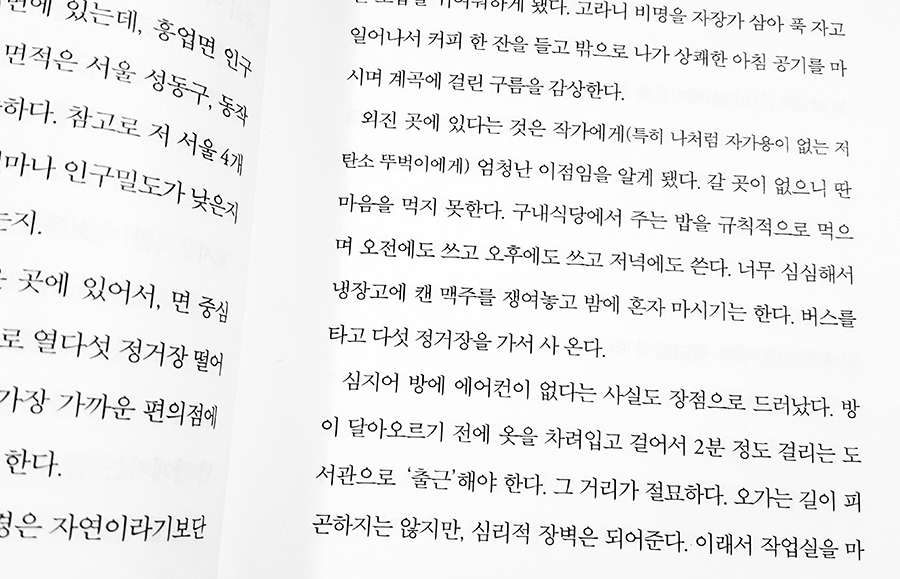 면에 있는데, 흥업면 인구
면적은 서울 성동구, 동작
하다. 참고로 저 서울 4개
마나 인구밀도가 낮은지
는지.
곳에 있어서, 면 중심
로 열다섯 정거장 떨어
가장 가까운 편의점에
한다.
은 자연이라기보단
귀여워하게 됐다. 고라니 비명을 자장가 삼아 푹 자고
일어나서 커피 한 잔을 들고 밖으로 나가 상쾌한 아침 공기를 마
시며 계곡에 걸린 구름을 감상한다.
외진 곳에 있다는 것은 작가에게(특히 나처럼 자가용이 없는 저
탄소 뚜벅이에게) 엄청난 이점임을 알게 됐다. 갈 곳이 없으니 딴
마음을 먹지 못한다. 구내식당에서 주는 밥을 규칙적으로 먹으
며 오전에도 쓰고 오후에도 쓰고 저녁에도 쓴다. 너무 심심해서
냉장고에 캔 맥주를 쟁여놓고 밤에 혼자 마시기는 한다. 버스를
타고 다섯 정거장을 가서 사 온다.
심지어 방에 에어컨이 없다는 사실도 장점으로 드러났다. 방
이 달아오르기 전에 옷을 차려입고 걸어서 2분 정도 걸리는 도
서관으로 ‘출근’해야 한다. 그 거리가 절묘하다. 오가는 길이 피
곤하지는 않지만, 심리적 장벽은 되어준다. 이래서 작업실을 마